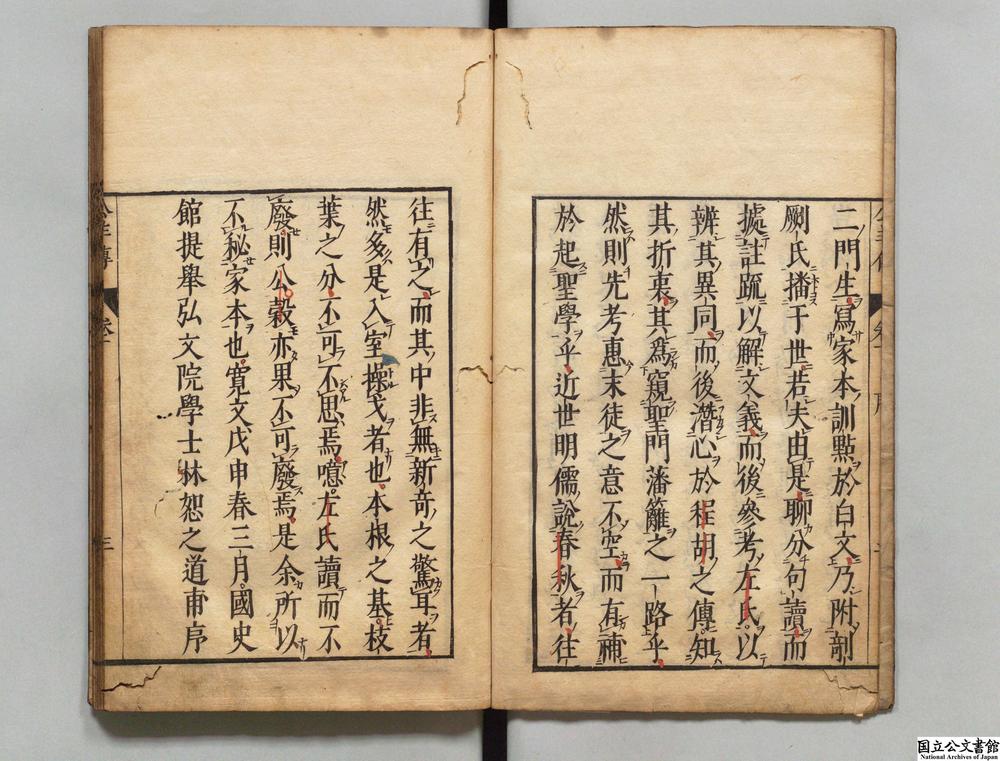 二門生寫家本訓點於白文乃附剞
劂氏播于世若夫由是聊分句讀而
據註疏以解文義而後參考左氏以
辨其異同而後潛心於程胡之傳知
其折衷其爲窺聖門藩籬之一路乎
然則先考惠末徒之意不空而有補
於起聖學乎近世明儒説春秋者往
往有之而其中非無新奇之驚耳者
然多是入室操戈者也本根之基枝
葉之分不可不思焉噫左氏讀而不
廢則公穀亦果不可廢焉是余所以
不秘家本也寛文戊申春三月國史
館提舉弘文院學士林恕之道甫序
国立公文書館
National Archives of Japan